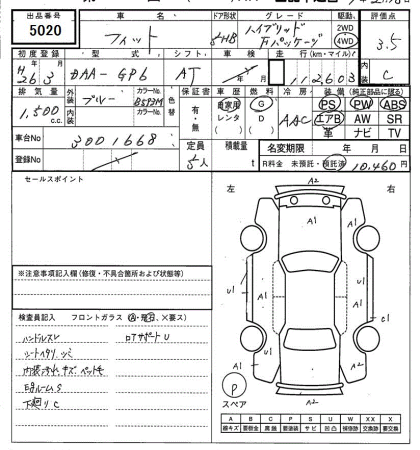 出品番号 車名 ドア形状 グレード 駆動 評価点
5020 フィット 5HB ハイブリッド Fパッケージ 2WD 4WD 3.5
初度登録 型式 シフト 車検 走行(km・マイル) 内装
H26 3 DAA-GP6 AT 112603 C
排気量 外装 カラーNo. 色替 保証書 車歴 燃料 冷房 装備(純正部品に限る)
1,500 c.c. ブルー B593M 有・無 自家用 G AAC PS PW ABS
内装 カラーNo. レンタ D エアB AW SR
車台No 3001668 ( ) ( ) 革 ナビ TV
定員 積載量 名変期限 年 月
登録No 5人 t R料金 未預託・預託済 10,460円
セールスポイント
左 右
A2
A1 A1
A1
U1 U1 A1 A1 C1
A1
A2
P
スペア
※注意事項記入欄(修復・不具合箇所および状態等)
検査員記入 フロントガラス (A・飛石・X要ス)
ハンドルスレ ロアサポートU
シートヘタリ、シミ
内張汚れ キズ
下廻りC
A B C P S U W X XX
線キズ